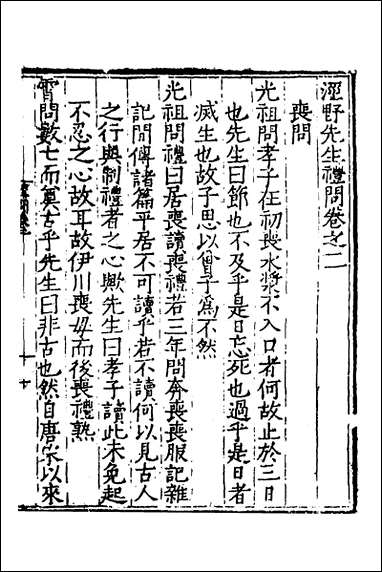 涇野先生禮問卷之二
喪問
光祖問孝子在初喪水漿不入口者何故止於三日
也先生曰節也不及乎是日忘死也過乎是日者
滅生也故子思以曾子為不然
光祖問禮曰居喪讀喪禮若三年問奔喪喪服記雜
記問傳諸篇平居不可讀乎若不讀何以見古人
之行與制禮者之心歟先生曰孝子讀此未免起
不忍之心故耳故伊川喪母而後喪禮熟
霄問數七而奠古乎先生曰非古也然自唐宋以來